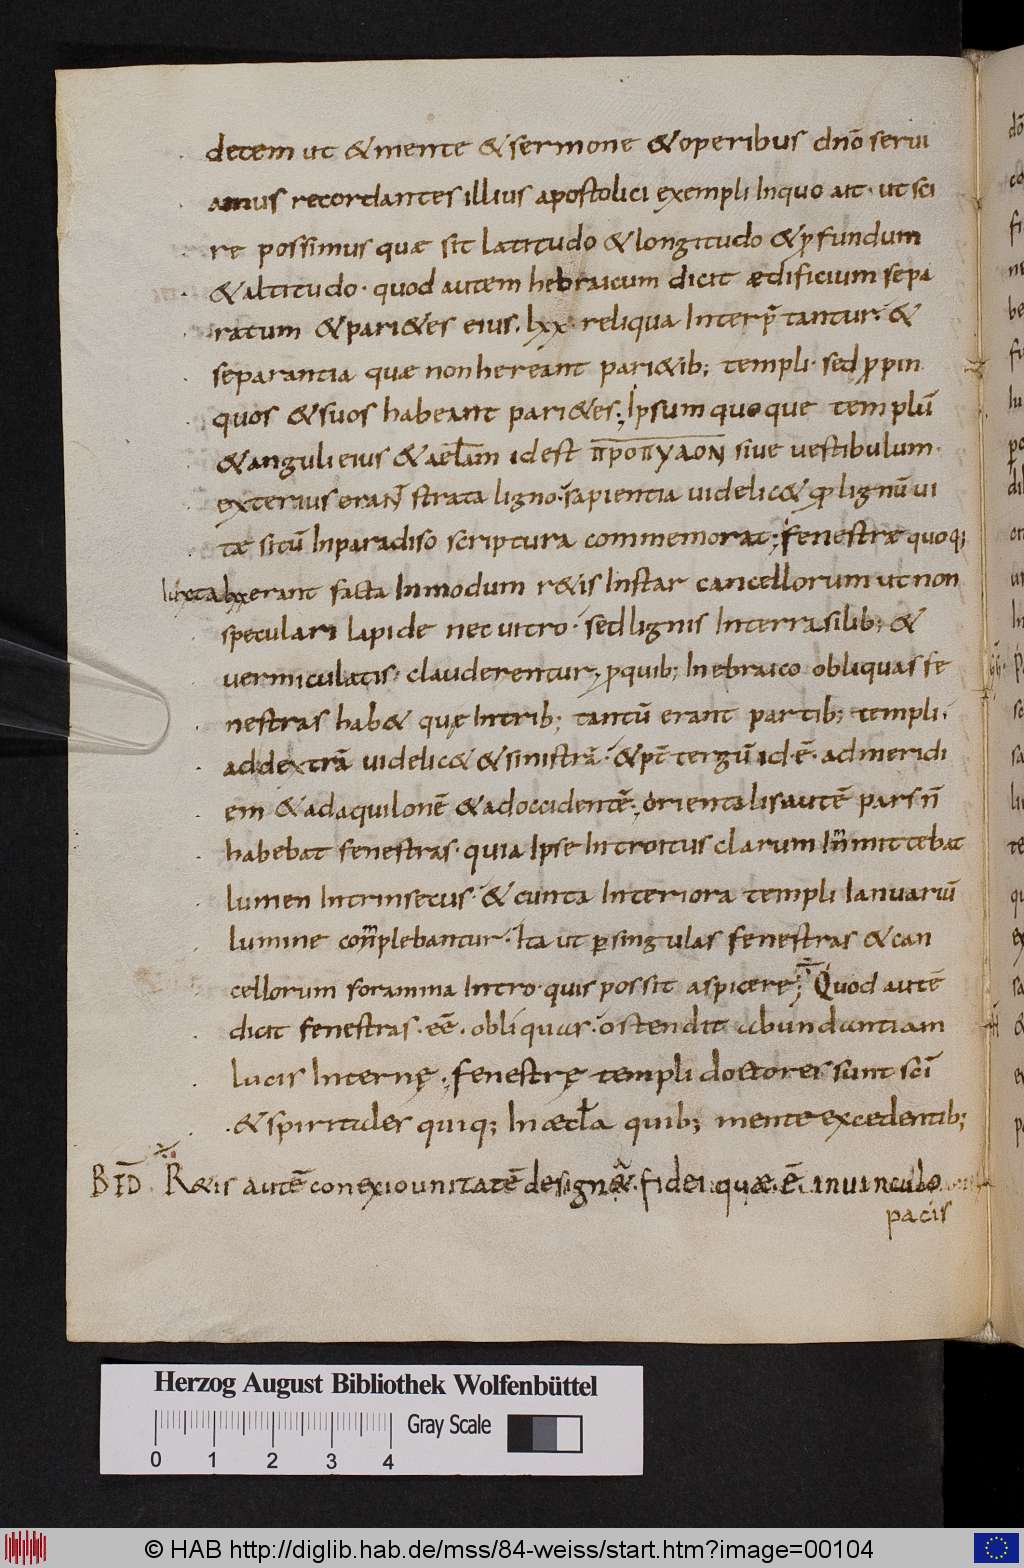 detem ut &mente &sermone &operibus dño serui
amus recordantes illius apostolici exempli Inquo ait · ut sci
re possimus quæ sit latitudo &longitudo &ꝓfundum
&altitudo · quod autem hebraicum dicit ædificium sepa
ratum &pari&es eius · lxx · reliqua Interp̃tantur · &
separantia quæ nonhereant pari&ib; templi · sed ꝓpin
quos &suos habeant pari&es ; Ipsum quoque templū
&anguli eius &aelam idest ΠΡΟΠΥΛΟΝ siue uestibulum ·
exterius erant strata ligno · sapientia uidelic& ꝓ lignū ui
tæ sitū Inparadiso scriptura commemorat ; fenestræ quoq;
Iuxta lxx erant facta Inmodum r&is Instar cancellorum ut non
speculari lapide nec uitro · sed lignis Interrasilib; &
uermiculatis · clauderentur · ꝓquib; Inebraico obliquas fe
nestras hab& quæ Intrib; tantū erant partib; templi ·
addextrā uidelic& &sinistrā · &pꝰ tergū id · ē · admeridi
em &adaquilonē &adoccidentē ; orientalis autē pars ñ
habebat fenestras · quia Ipse Introitus clarum Inmittebat
lumen Intrinsecus · &cuncta Interiora templi Ianuarū
lumine complebantur · Ita ut ꝑ singulas fenestras &can
cellorum foramina Intro · quis possit aspicere ; Quod autē
dicit fenestras · eē · obliquas · ostendit abundantiam
lucis Internę · fenestrę templi doctores sunt sc̄i
&spiritales quiq; Inæccl̄a quib; mente excedentib;
BED R&is autē conexio unitatē design& · fidei quæ · ē · in uinculo
pacis
Herzog August Bibliothek Wolfenbüttel
Gray Scale
0 1 2 3 4
© HAB http://diglib.hab.de/mss/84-weiss/start.htm?image=00104